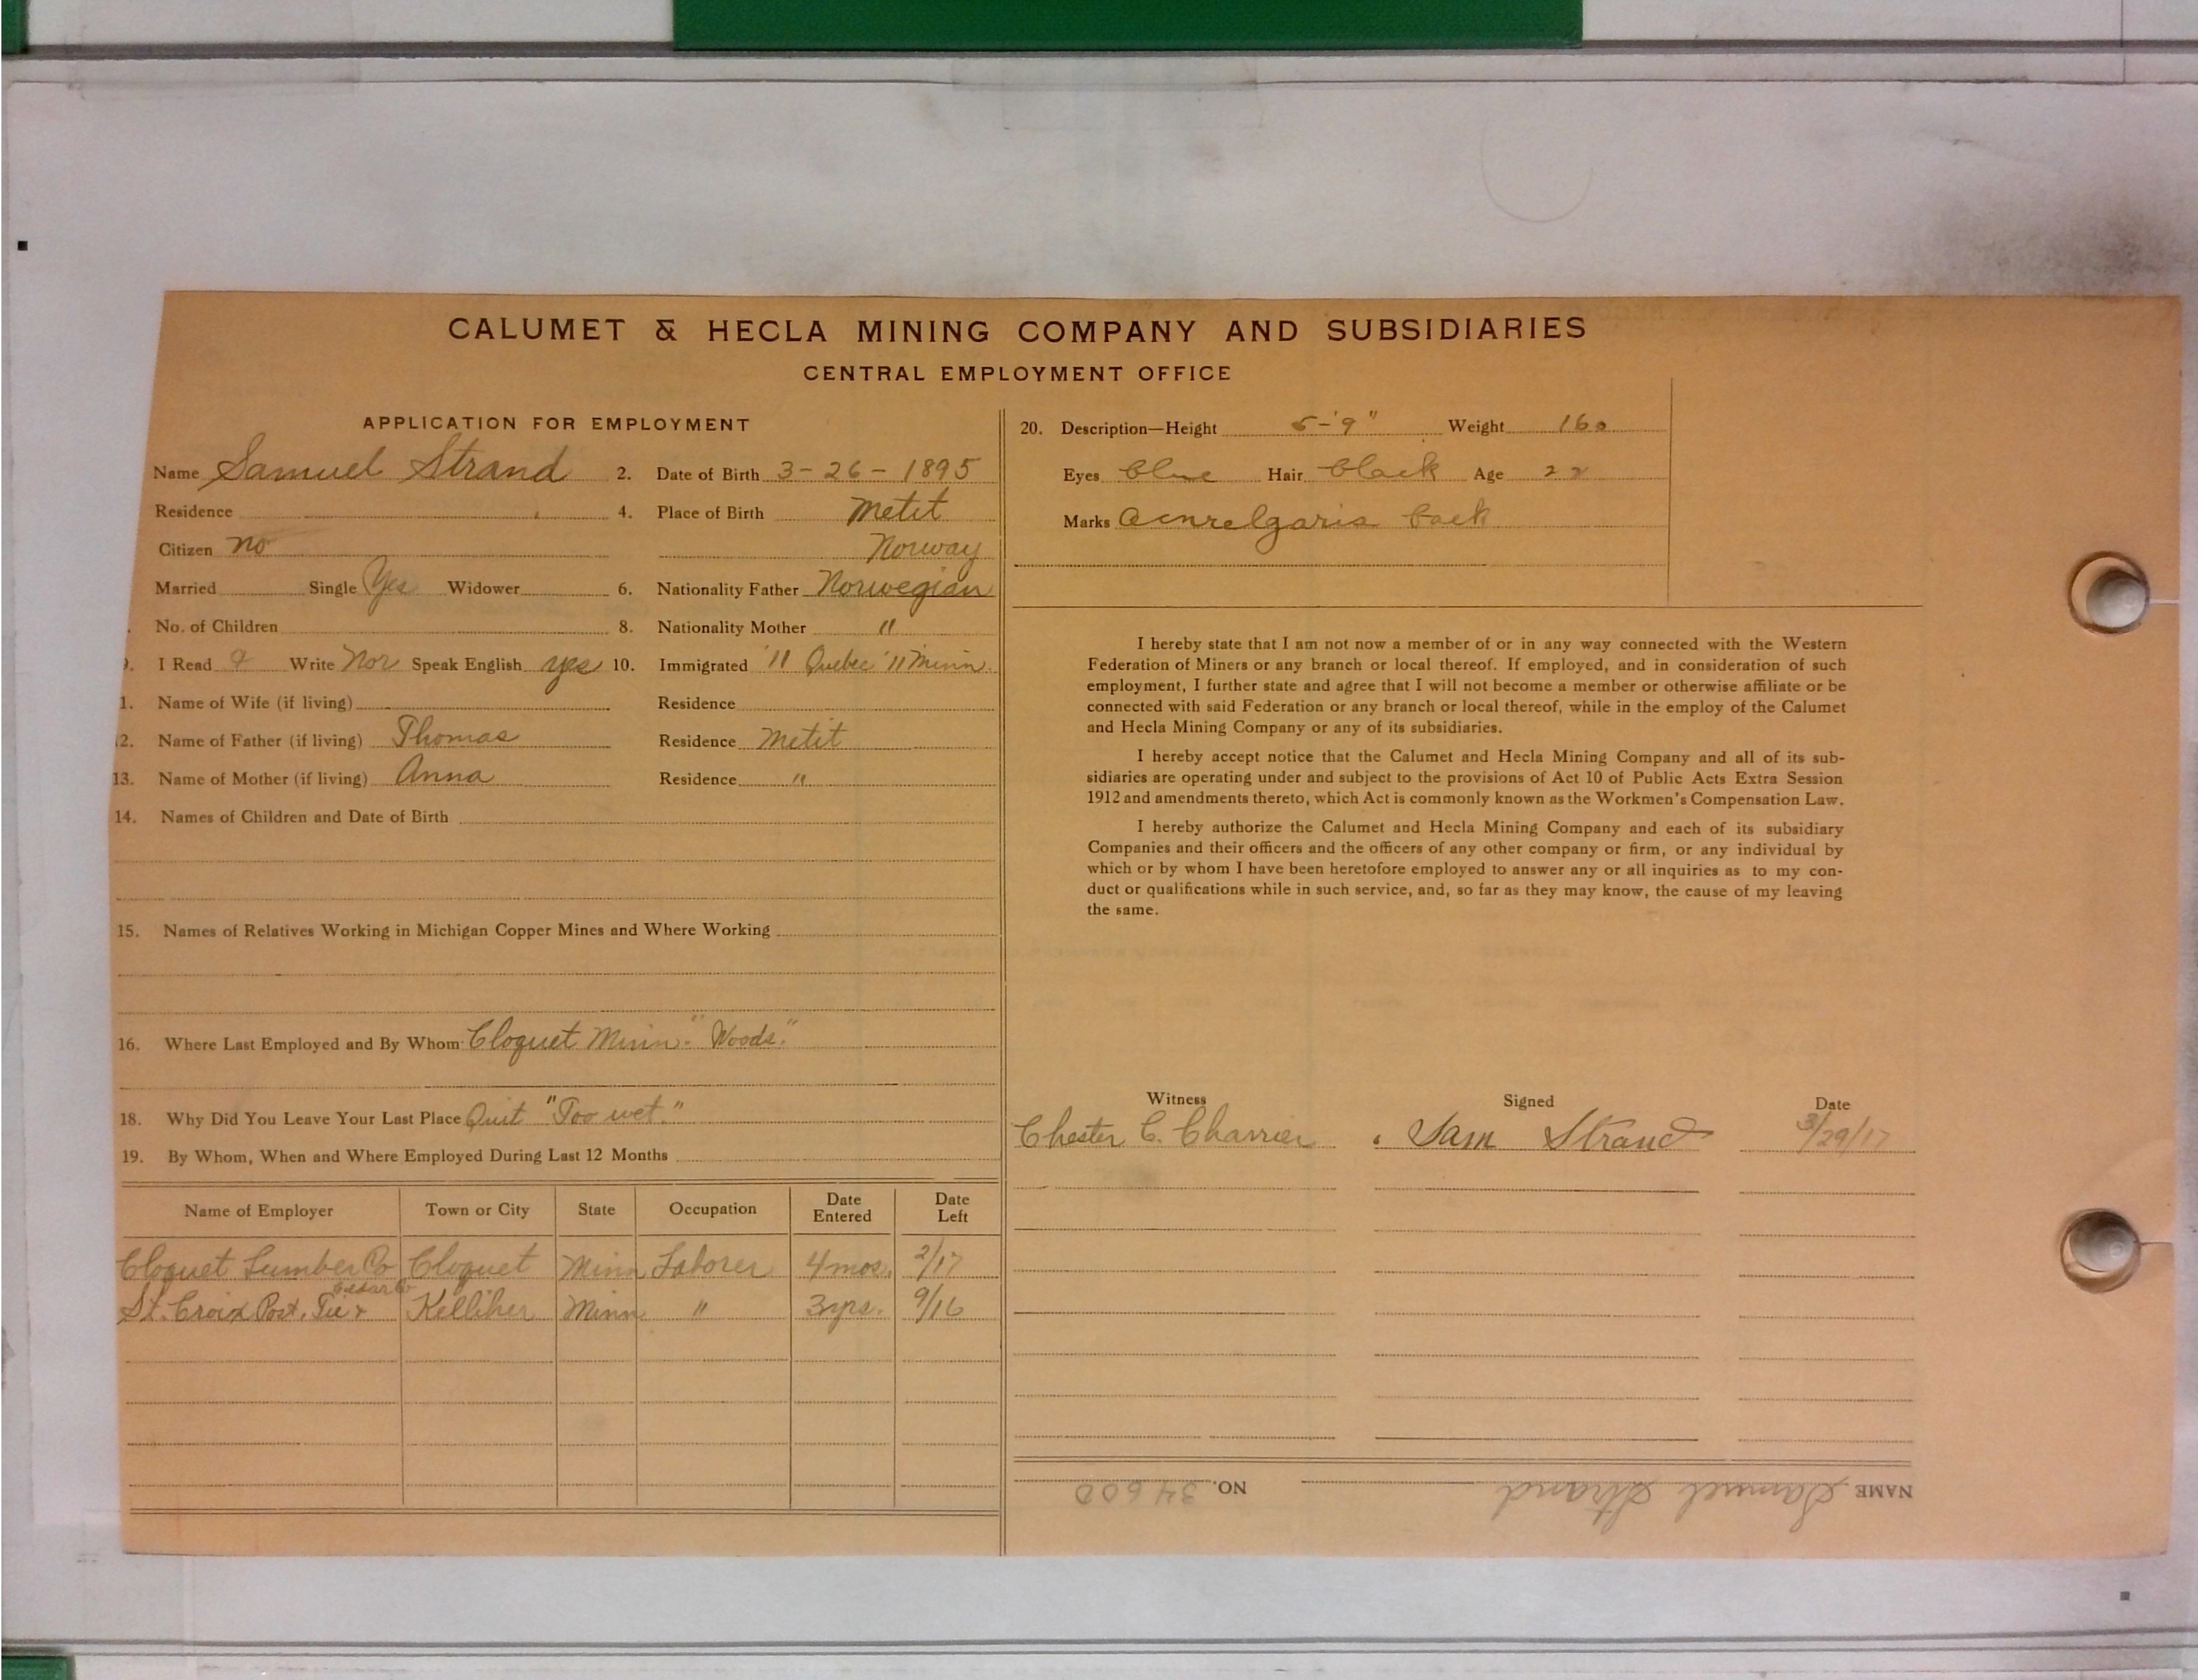 CALUMET & HECLA MINING COMPANY AND SUBSIDIARIES
CENTRAL EMPLOYMENT OFFICE
APPLICATION FOR EMPLOYMENT
Name Samuel Strand 2. Date of Birth 3-26-1895
Residence 4. Place of Birth Metit
Citizen no Norway
Married Single Yes Widower 6. Nationality Father Norwegian
No. of Children 8. Nationality Mother "
9. I Read & Write Nor Speak English yes 10. Immigrated '11 Quebec '11 Minn.
1. Name of Wife (if living) Residence
12. Name of Father (if living) Thomas Residence Metit
13. Name of Mother (if living) Anna Residence "
14. Names of Children and Date of Birth
15. Names of Relatives Working in Michigan Copper Mines and Where Working
16. Where Last Employed and By Whom Cloquet Minn. "Woods."
18. Why Did You Leave Your Last Place Quit "Too wet."
19. By Whom, When and Where Employed During Last 12 Months
Name of Employer Town or City State Occupation Date Entered Date Left
Cloquet Lumber Co Cloquet Minn Laborer 4 mos. 2/17
St. Croix Post, Tie & Cedar Co Kelliher Minn " 3 yrs. 9/16
20. Description—Height 5-'9" Weight 160
Eyes blue Hair black Age 22
Marks back
I hereby state that I am not now a member of or in any way connected with the Western
Federation of Miners or any branch or local thereof. If employed, and in consideration of such
employment, I further state and agree that I will not become a member or otherwise affiliate or be
connected with said Federation or any branch or local thereof, while in the employ of the Calumet
and Hecla Mining Company or any of its subsidiaries.
I hereby accept notice that the Calumet and Hecla Mining Company and all of its sub-
sidiaries are operating under and subject to the provisions of Act 10 of Public Acts Extra Session
1912 and amendments thereto, which Act is commonly known as the Workmen's Compensation Law.
I hereby authorize the Calumet and Hecla Mining Company and each of its subsidiary
Companies and their officers and the officers of any other company or firm, or any individual by
which or by whom I have been heretofore employed to answer any or all inquiries as to my con-
duct or qualifications while in such service, and, so far as they may know, the cause of my leaving
the same.
Witness Signed Date
Chester C. Charrier Sam Strand 3/29/17
NAME Samuel Strand NO. 34600